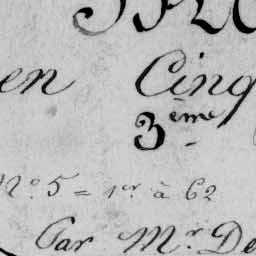 en Cinq
3ème
N° 5 = 1er à 62
Par Mr. De